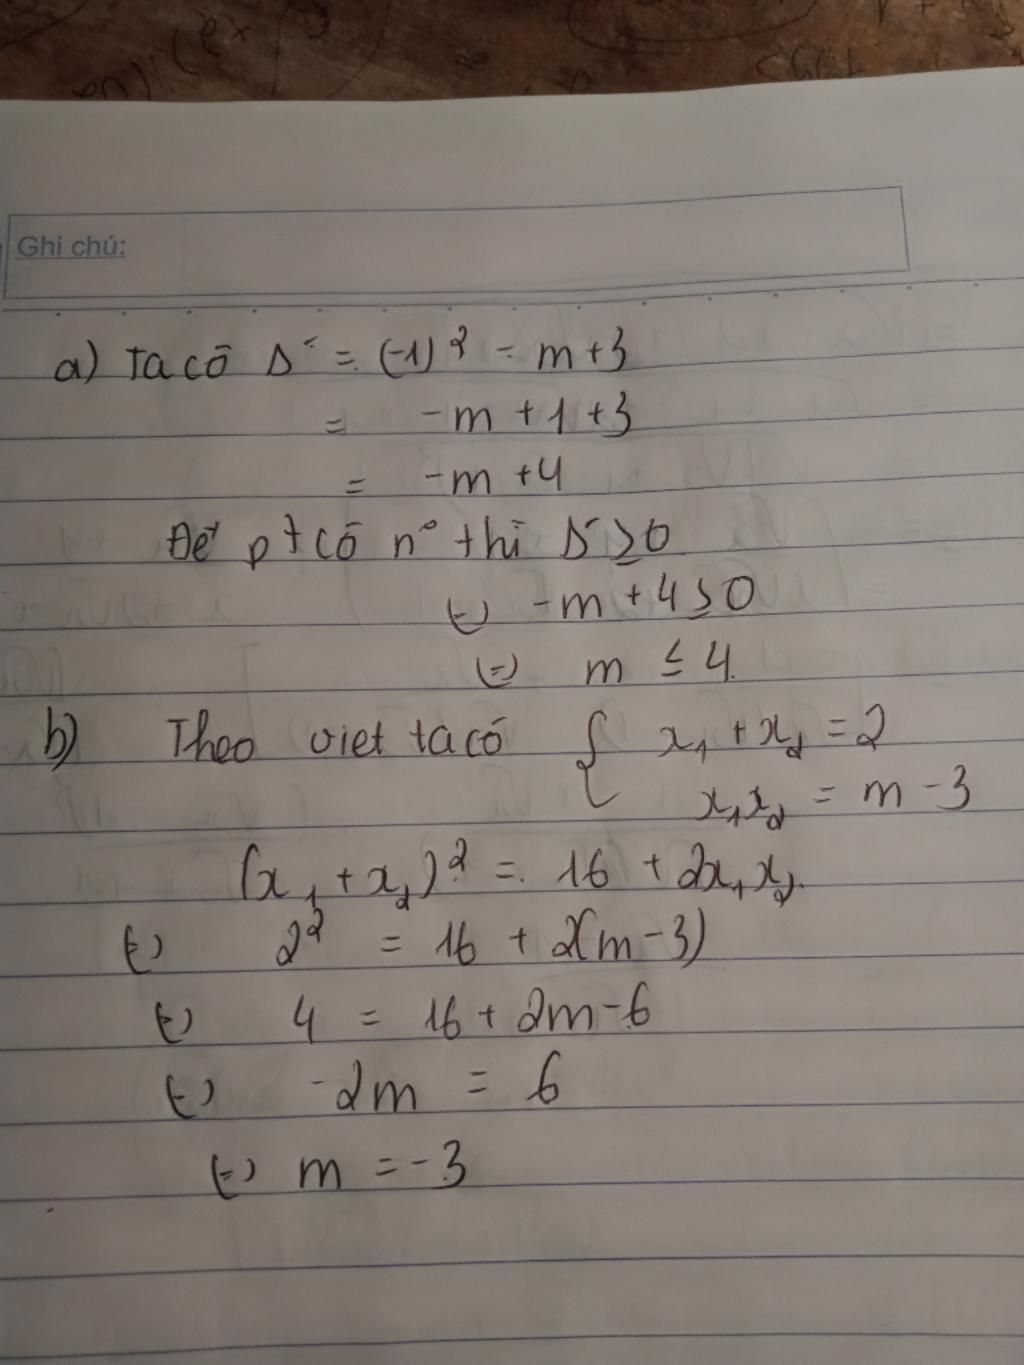 Ghi chú:
a) Ta có Δ' = (-1)² - m+3
= -m + 1 + 3
= -m + 4
Để pt có n° thì Δ' ≥ 0
(=) -m + 4 ≥ 0
(=) m ≤ 4
b) Theo viet ta có { x₁ + x₂ = 2
x₁x₂ = m - 3
(x₁ + x₂)² = 16 + 2x₁x₂
(=) 2² = 16 + 2(m-3)
(=) 4 = 16 + 2m - 6
(=) -2m = 6
(=) m = -3